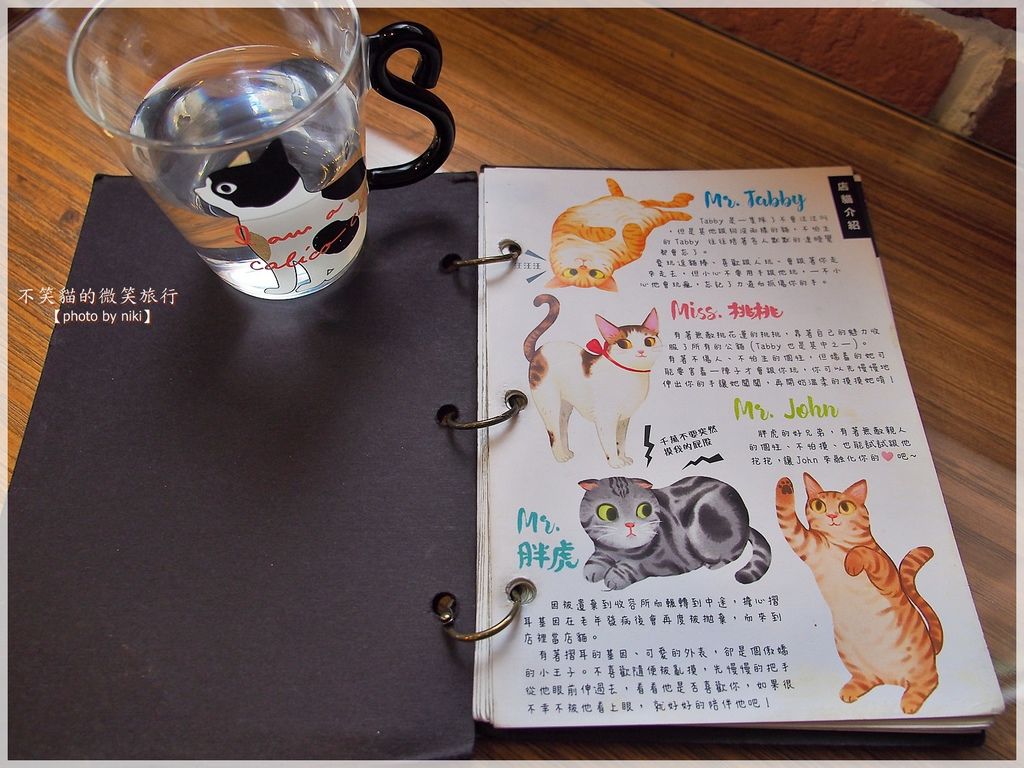 I am a
calico
不笑貓的微笑旅行
【photo by niki】
店貓介紹
Mr. Tabby
Tabby 是一隻除了不會汪汪叫
，但是其他跟狗沒兩樣的貓，不怕生
的 Tabby 往往陪著客人
都會忘了。
愛玩逗貓棒、喜歡跟人玩、會跟著你走
來走去，但小心不要用手跟他玩，一不小
心他會玩瘋，忘記了力道而抓傷你的手。
汪汪汪
Miss. 桃桃
有著無敵桃花運的桃桃，靠著自己的魅力收
服了所有的公貓(Tabby 也是其中之一)。
有著不傷人、不怕生的個性，但嬌羞的她可
能要害羞一陣子才會跟你玩，你可以先慢慢地
伸出你的手讓她聞聞，再開始溫柔的摸摸她唷！
千萬不要突然
摸我的屁股
Mr. John
胖虎的好兄弟，有著無敵親人
的個性、不怕摸、也能試試跟他
抱抱，讓John 來融化你的❤吧~
Mr.
胖虎
因被遺棄到收容所而輾轉到中途，擔心摺
耳基因在老年發病後會再度被拋棄，而來到
店裡當店貓。
有著摺耳的基因、可愛的外表，卻是個傲嬌
的小王子。不喜歡隨便被亂摸，先慢慢的把手
從他眼前伸過去，看看他是否喜歡你，如果很
不幸不被他看上眼，就好好的陪伴他吧！